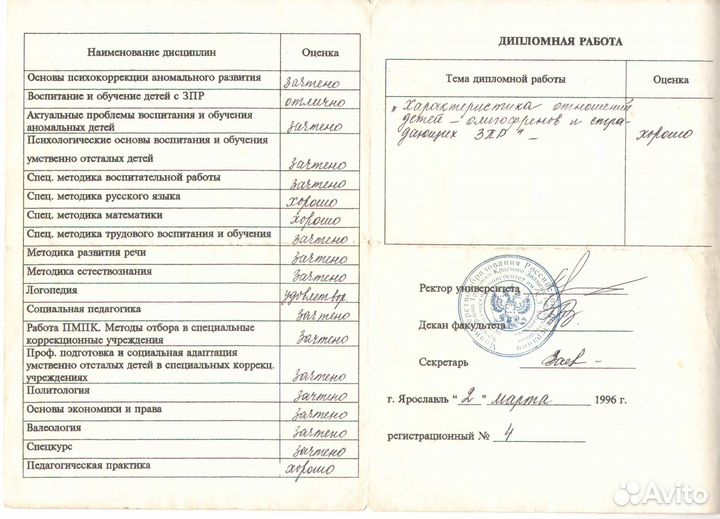 Наименование дисциплин Оценка
Основы психокоррекции аномального развития зачтено
Воспитание и обучение детей с ЗПР отлично
Актуальные проблемы воспитания и обучения
аномальных детей зачтено
Психологические основы воспитания и обучения
умственно отсталых детей зачтено
Спец. методика воспитательной работы зачтено
Спец. методика русского языка хорошо
Спец. методика математики хорошо
Спец. методика трудового воспитания и обучения зачтено
Методика развития речи зачтено
Методика естествознания зачтено
Логопедия удовлетвор
Социальная педагогика зачтено
Работа ПМПК. Методы отбора в специальные
коррекционные учреждения зачтено
Проф. подготовка и социальная адаптация
умственно отсталых детей в специальных коррекц.
учреждениях зачтено
Политология зачтено
Основы экономики и права зачтено
Валеология зачтено
Спецкурс зачтено
Педагогическая практика хорошо
ДИПЛОМНАЯ РАБОТА
Тема дипломной работы Оценка
„Характеристика отношений
детей – олигофренов и стра-
дающих ЗПР" – хорошо
Ректор университета
Декан факультета
Секретарь
г. Ярославль "2" марта 1996 г.
регистрационный № 4
Avito